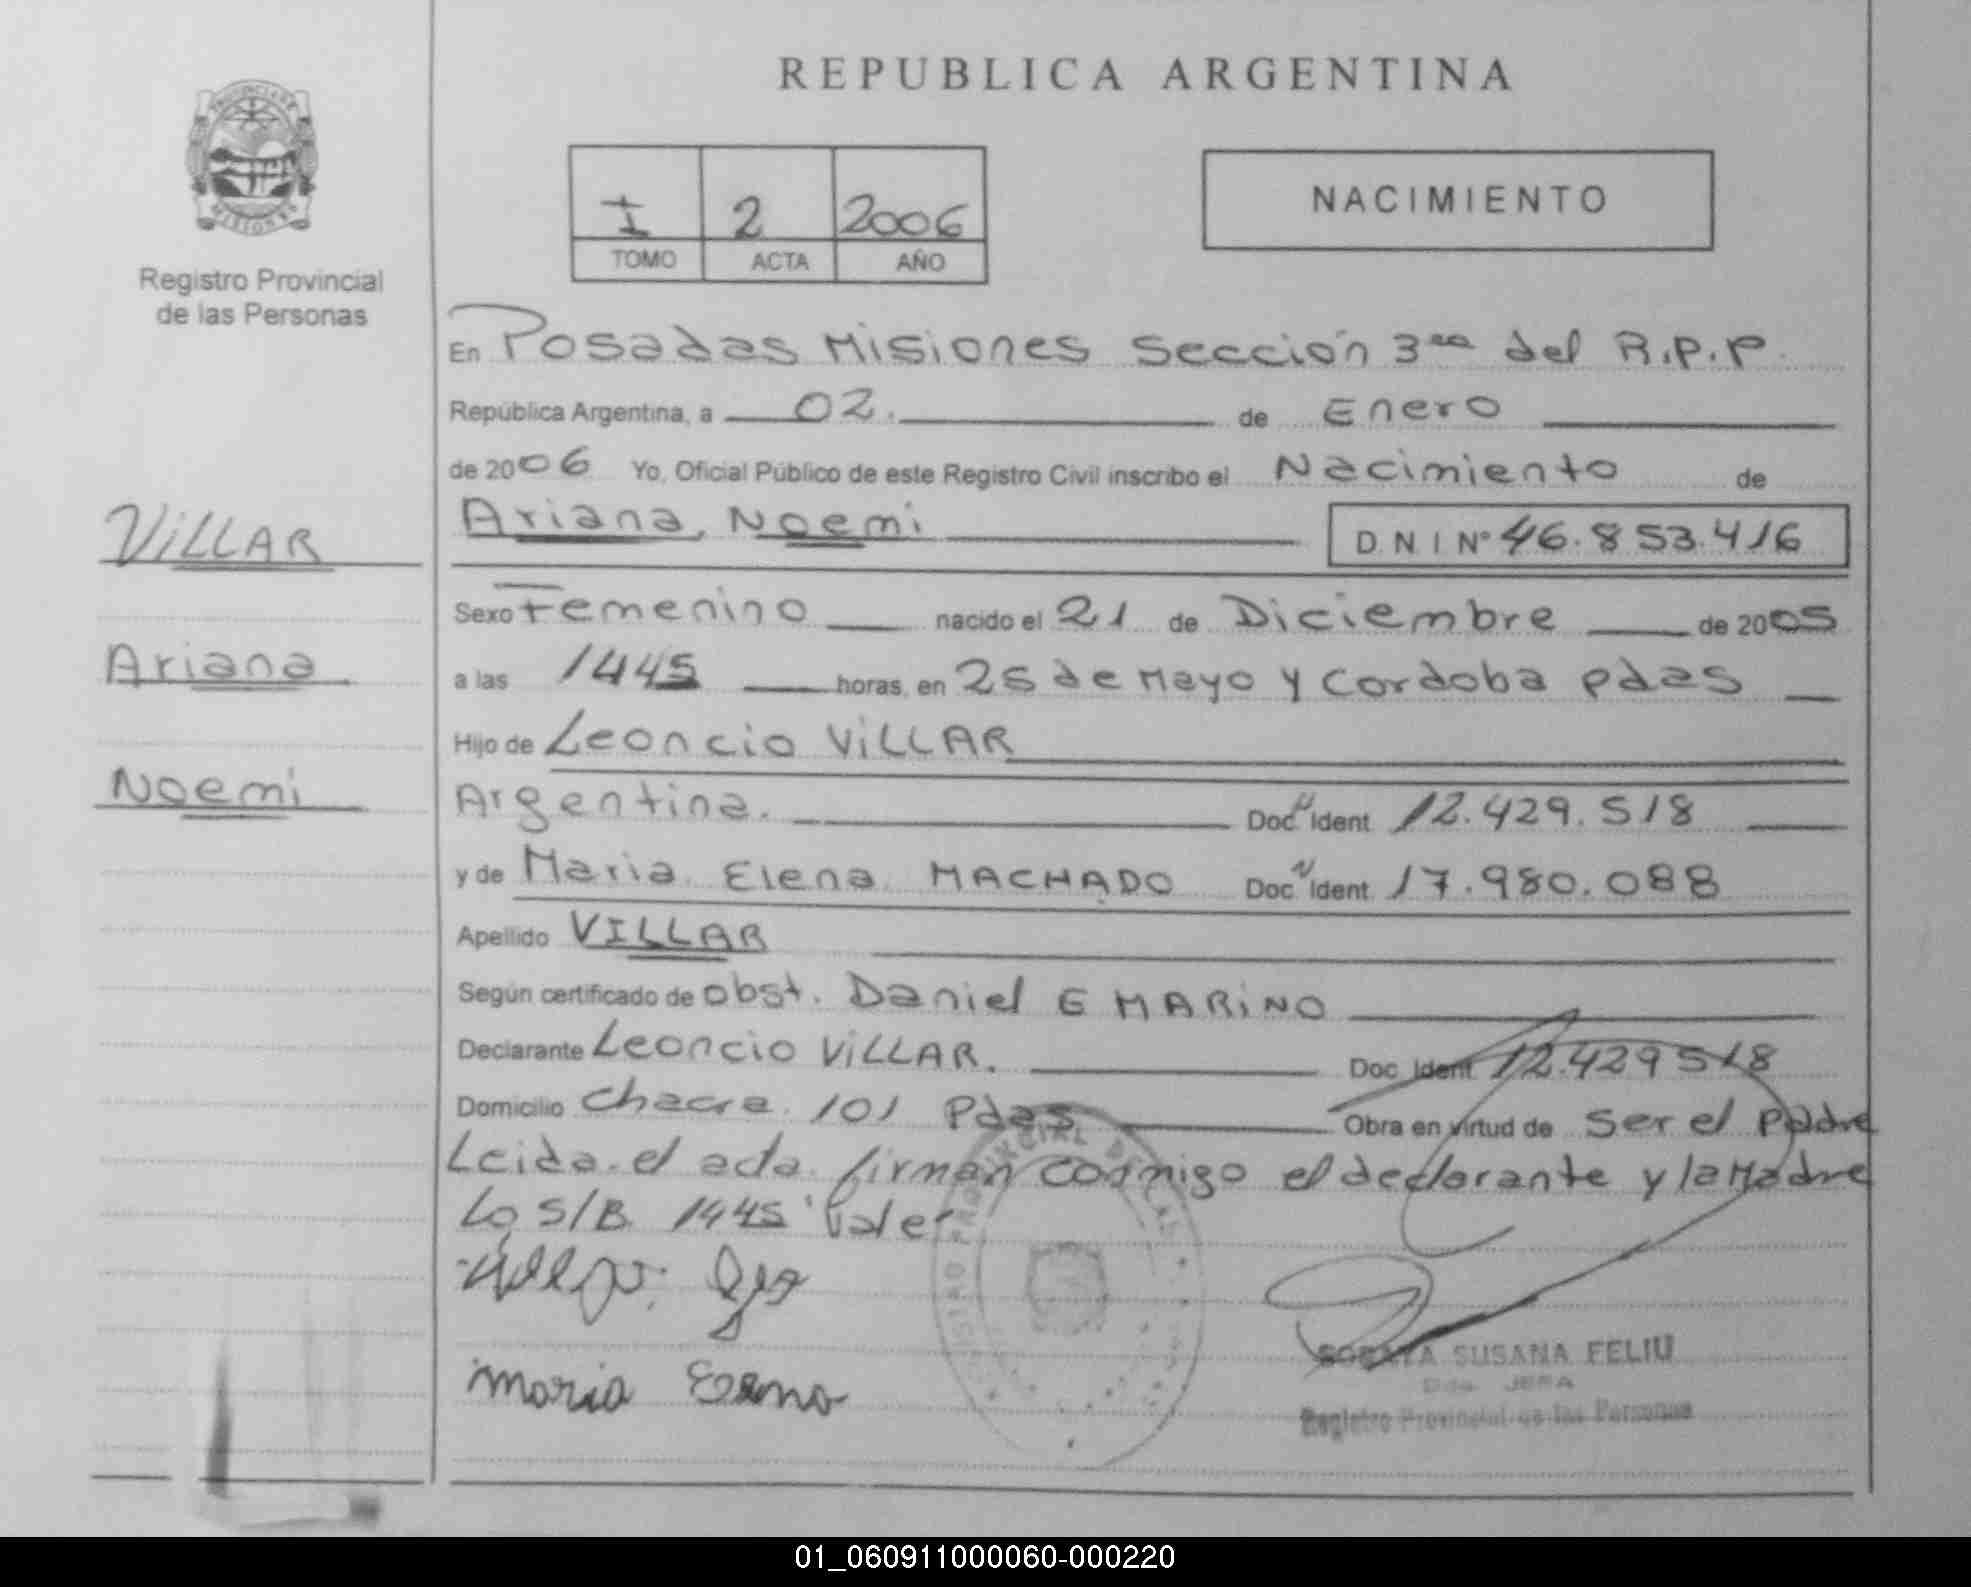 REPUBLICA ARGENTINA
PROVINCIA DE
MISIONES
Registro Provincial
de las Personas
I 2 2006
TOMO ACTA AÑO
NACIMIENTO
En Posadas Misiones Sección 3ra del R.P.P.
República Argentina, a 02. de Enero
de 2006 Yo, Oficial Público de este Registro Civil inscribo el Nacimiento de
Ariana, Noemi D.N.I Nº 46.853.416
VILLAR
Ariana
Noemi
Sexo Femenino nacido el 21 de Diciembre de 2005
a las 1445 horas, en 25 de Mayo y Cordoba pdas
Hijo de Leoncio VILLAR
Argentina. Doc N Ident 12.429.518
y de Maria Elena MACHADO Doc N Ident 17.980.088
Apellido VILLAR
Según certificado de obst. Daniel E MARINO
Declarante Leoncio VILLAR. Doc Ident 12.429518
Domicilio Chacra 101 Pdas Obra en virtud de Ser el padre
Leida el acta firman conmigo el declarante y la Madre
Lo S/B 1445 Vale
Maria Elena
SORAYA SUSANA FELIU
JEFA
Registro Provincial de las Personas
01_060911000060-000220